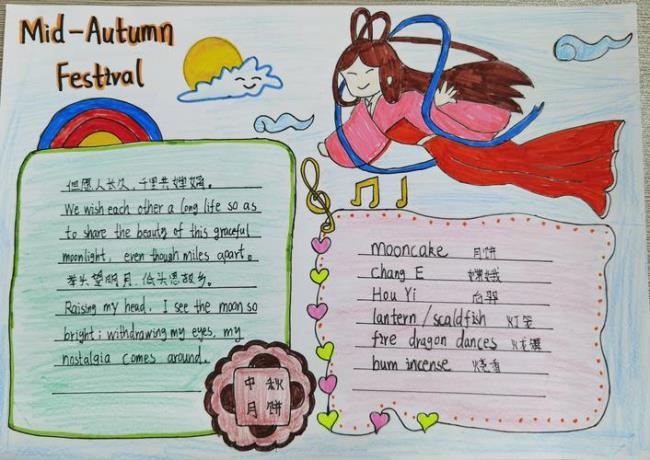 Mid-Autumn
Festival
但愿人长久,千里共婵娟。
We wish each other a long life so as
to share the beauty of this graceful
moonlight, even though miles apart。
举头望明月,低头思故乡。
Raising my head, I see the moon so
bright; withdrawing my eyes, my
nostalgia comes around.
中秋
月饼
mooncake 月饼
chang E 嫦娥
Hou Yi 后羿
lantern/scaldfish 灯笼
fire dragon dances
burn incense 烧香